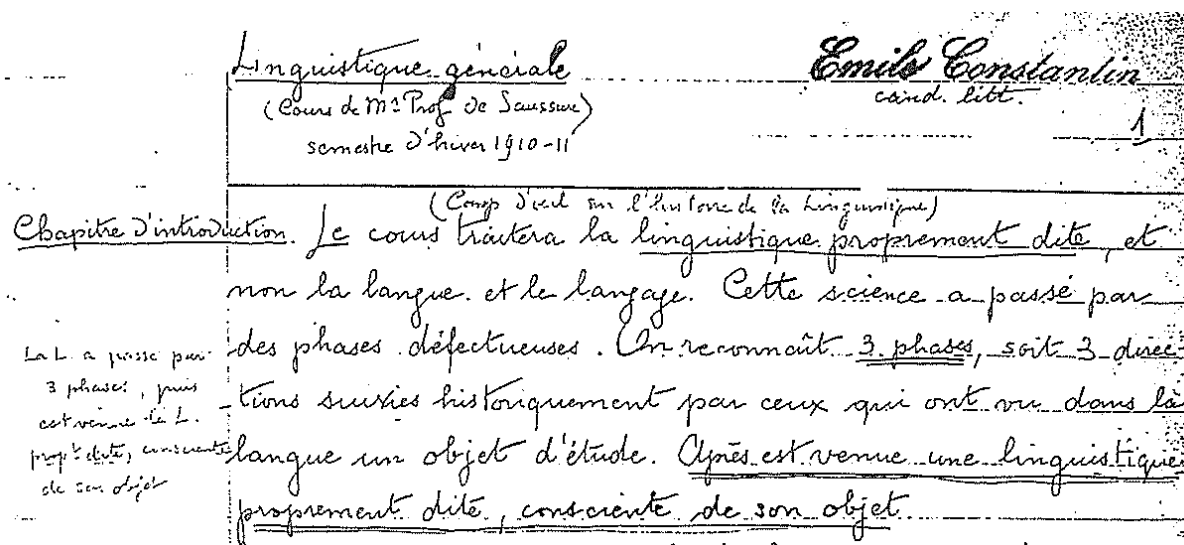 Linguistique générale
Emile Constantin
cand. litt.
(Cours de Mr Prof de Saussure)
semestre d'hiver 1910-11
1
(Coup d'œil sur l'histoire de la Linguistique)
Chapitre d'introduction. Le cours traitera la linguistique proprement dite, et
non la langue et le langage. Cette science a passé par
des phases défectueuses. On reconnaît 3 phases, soit 3 direc-
tions suivies historiquement par ceux qui ont vu dans la
langue un objet d'étude. Après est venue une linguistique
proprement dite, consciente de son objet.
La L. a passé par
3 phases, puis
est venue la L.
propt dite, consciente
de son objet